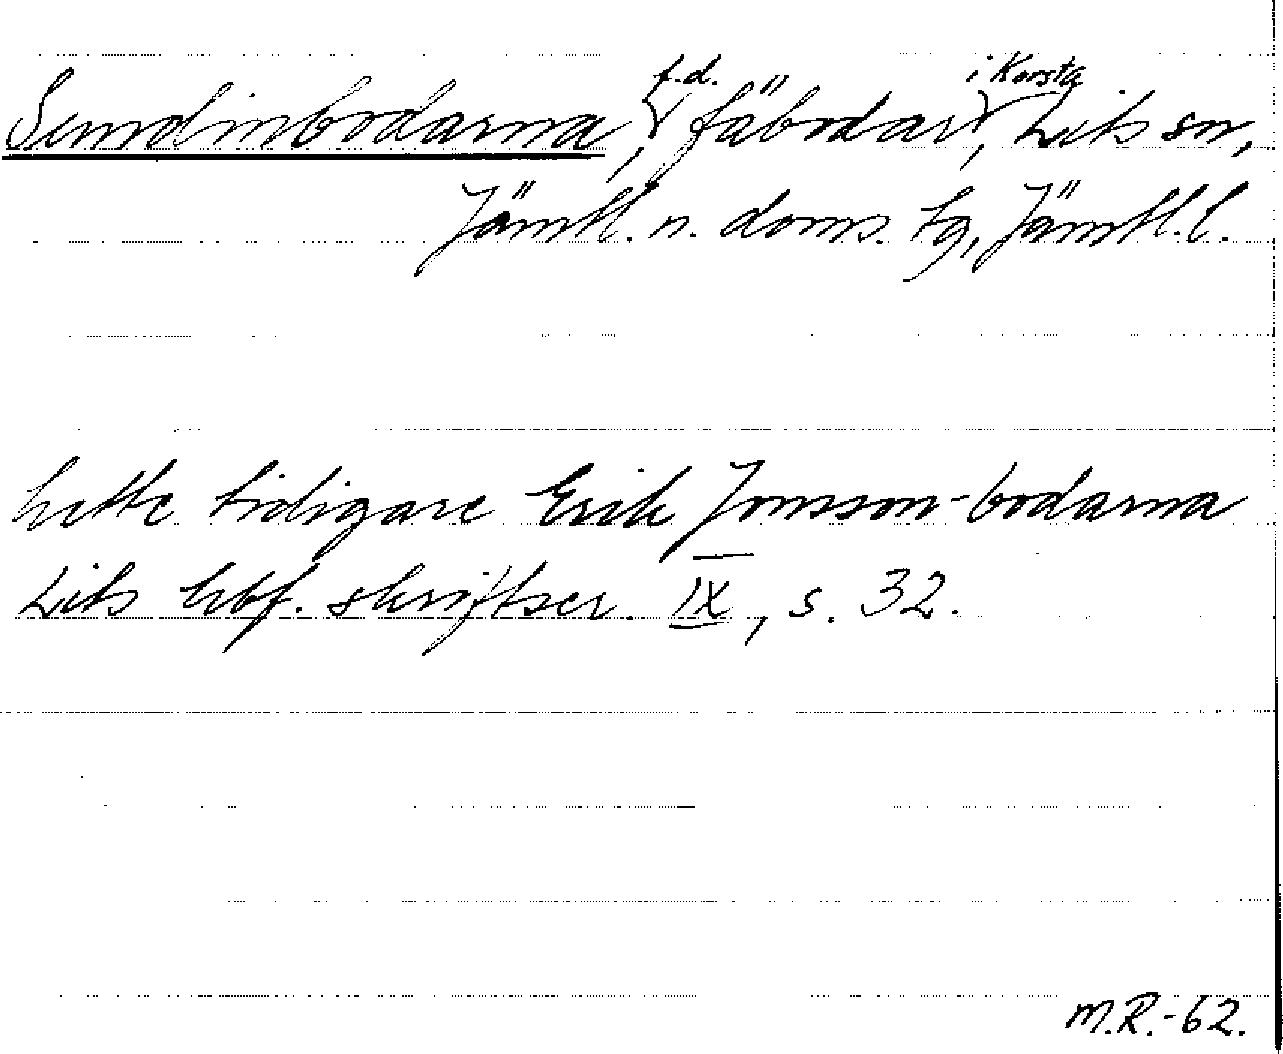 Sundinbodarna, f.d. fäbodar i Korsta, Lits sn,
Jämtl. n. doms. tg, Jämtl. l.
hette tidigare Erik Jonsson-bodarna
Lits hbf. skriftser. IX, s. 32.
M.R.-62.